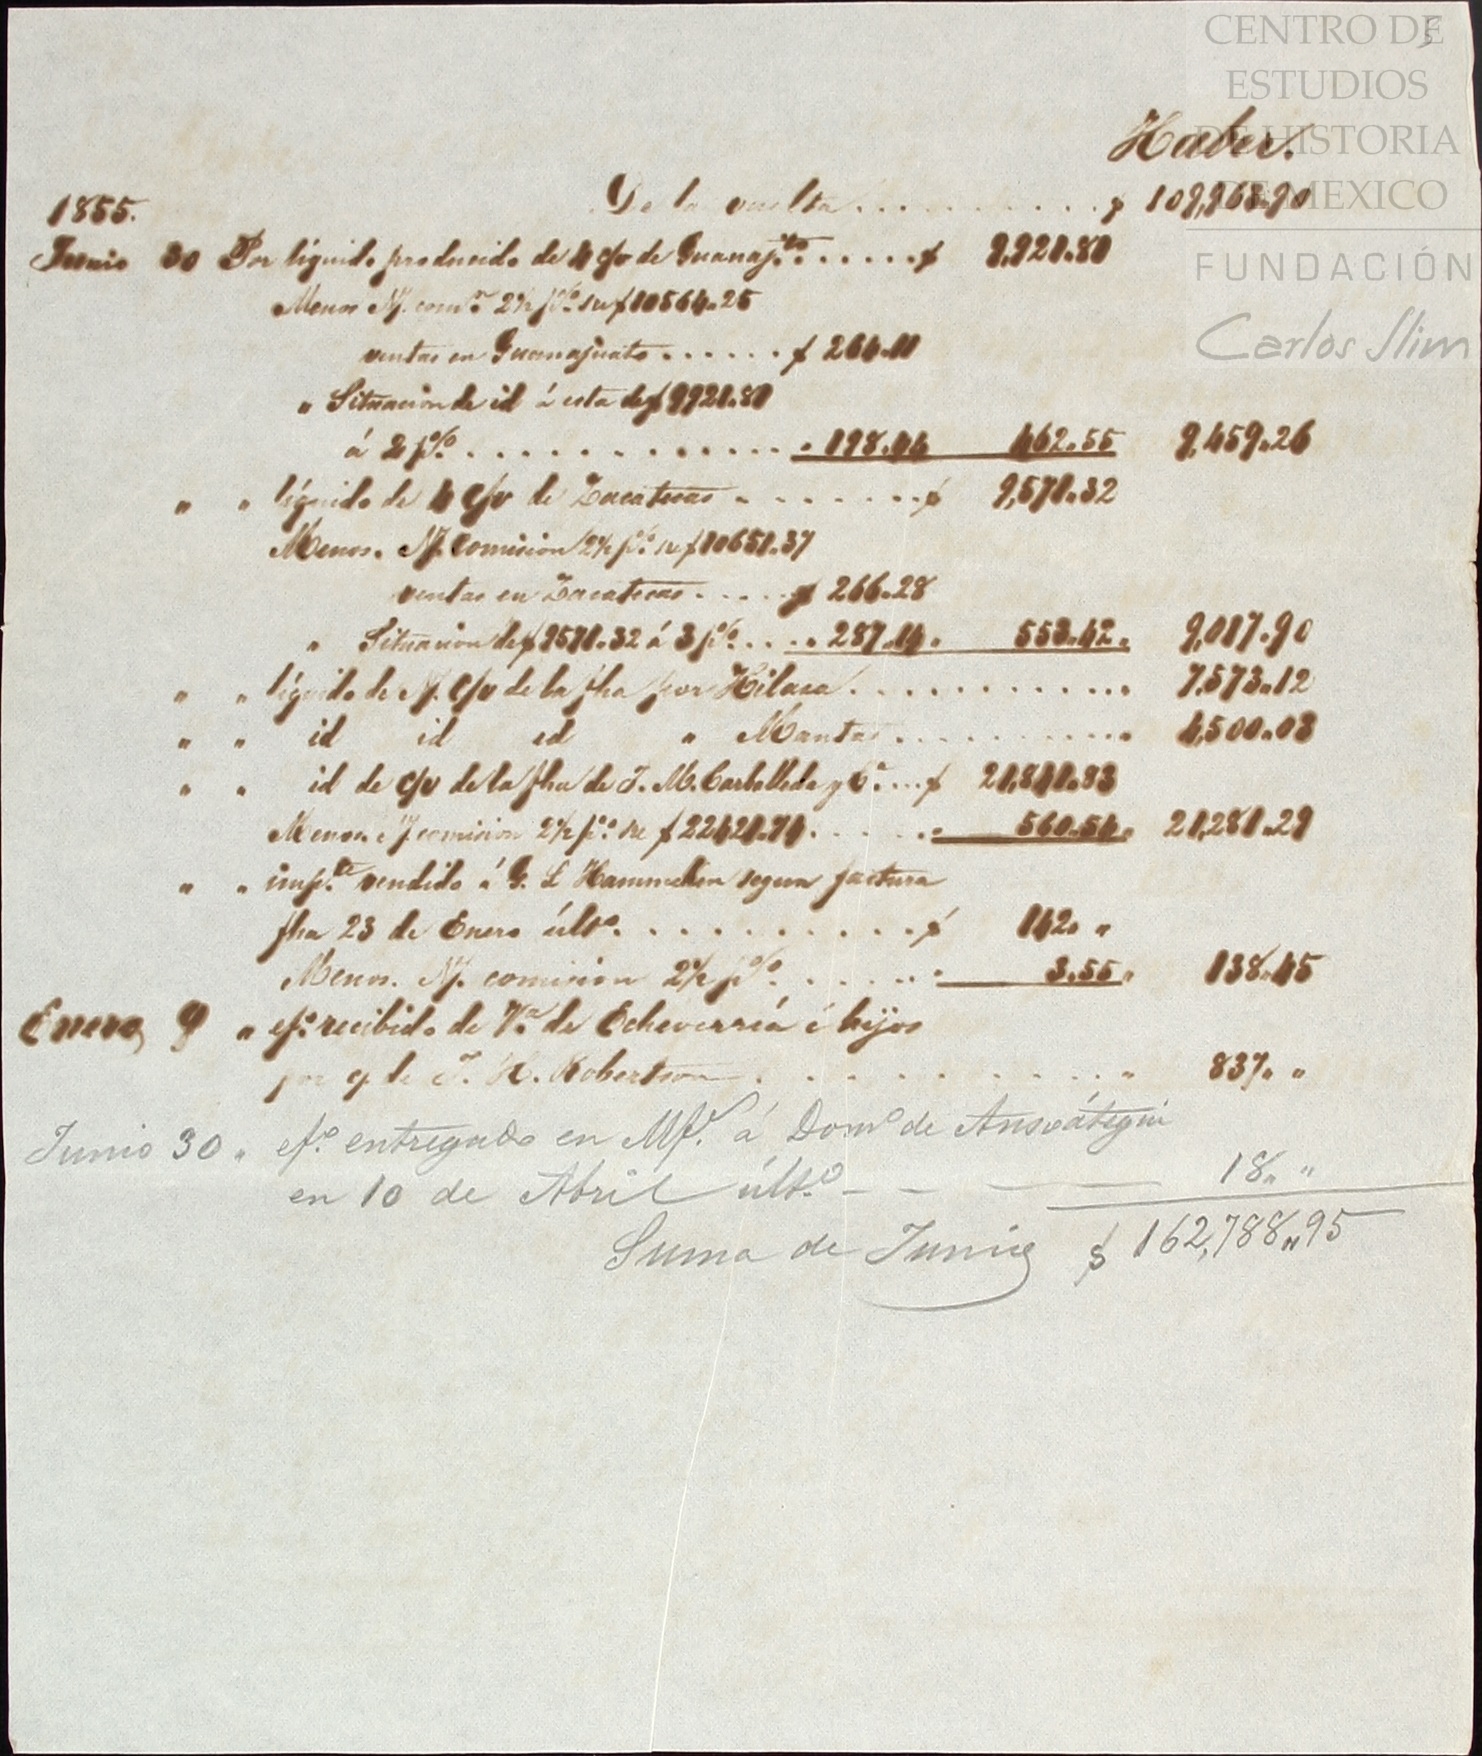 5
CENTRO DE
ESTUDIOS
DE HISTORIA
DE MEXICO
FUNDACIÓN
Carlos Slim
Haber.
De la vuelta . . . . . . . . . . $ 109,963.90
1855.
Junio 30 Por líquido producido de 4 c/v de Guanajto. . . . . . $ 9,921.81
Menos N/. comon. 2½ p%. s/re $10564.25
ventas en Guanajuato . . . . . . $ 264.11
" Situacion de id á esta de $9921.81
á 2 p%. . . . . . . . . . . . . " 198.44 462.55 9,459.26
" " líquido de 4 c/v de Zacatecas . . . . . . . $ 9,571.32
Menos. N/. Comision 2½ p%. s/re $10651.37
ventas en Zacatecas . . . . . $ 266.28
" Situacion de $9571.32 á 3 p%. . . . " 287.14. 553.42. 9,017.90
" " líquido de N/. c/v de la fha por Hilaza . . . . . . . . . . . . " 7,573.12
" " id id id " Mantas . . . . . . . . . . " 4,500.03
" " id de c/v de la fha de J. M. Carballeda y Ca. . . . $ 21,841.83
Menos N/ comision 2½ p%. s/re $22421.74. . . . . . " 560.54. 21,281.29
" " impte. vendido á G. L Hammeken segun factura
fha 23 de Enero últo. . . . . . . . . . . $ 142. "
Menos. N/. comision 2½ p%. . . . . . " 3.55. 138.45
Enero 9 " efo. recibido de Va. de Echeverría é hijos
por q. de J. H. Robertson . . . . . . . . . . " 837. "
Junio 30 " efo. entregado en Mfo. á Domo de Ansoátegui
en 10 de Abril últo. — — — — 18. "
Suma de Junio $ 162,788.95